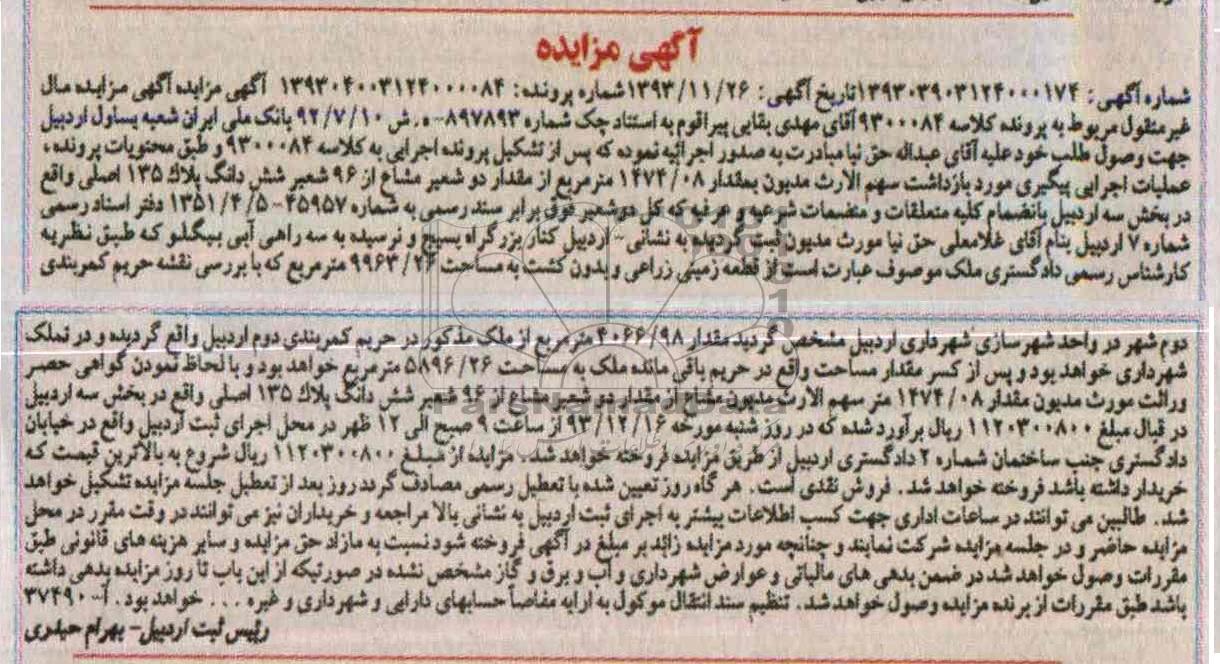 آگهی مزایده
شماره آگهی: ۱۳۹۳۰۳۹۰۳۱۲۴۰۰۰۱۷۴تاریخ آگهی: ۱۳۹۳/۱۱/۲۶شماره پرونده: ۱۳۹۳۰۴۰۰۳۱۲۴۰۰۰۰۸۴ آگهی مزایده آگهی مزایده مال
غیر منقول مربوط به پرونده کلاسه ۹۳۰۰۰۸۴ آقای مهدی بقایی پیراقوم به استناد چک شماره ۸۹۷۸۹۳-ه.ش ۹۲/۷/۱۰ بانک ملی ایران شعبه یساول اردبیل
جهت وصول طلب خود علیه آقای عبداله حق نیا مبادرت به صدور اجرائیه نموده که پس از تشکیل پرونده اجرایی به کلاسه ۹۳۰۰۰۸۴ و طبق محتویات پرونده،
عملیات اجرایی پیگیری مورد بازداشت سهم الارث مدیون بمقدار ۱۴۷۴/۰۸ مترمربع از مقدار دو شعیر مشاع از ۹۶ شعیر شش دانگ پلاک ۱۳۵ اصلی واقع
در بخش سه اردبیل بانضمام کلیه متعلقات و منضمات شرعیه و عرفیه که کل دو شعیر فوق برابر سند رسمی به شماره ۴۵۹۵۷-۱۳۵۱/۴/۵ دفتر اسناد رسمی
شماره ۷ اردبیل بنام آقای غلامعلی حق نیا مورث مدیون ثبت گردیده به نشانی- اردبیل کنار بزرگراه بسیج و نرسیده به سه راهی آبی بیگلو که طبق نظریه
کارشناس رسمی دادگستری ملک موصوف عبارت است از قطعه زمینی زراعی و بدون کشت به مساحت ۹۹۶۳/۲۴ مترمربع که با بررسی نقشه حریم کمربندی
دوم شهر در واحد شهرسازی شهرداری اردبیل مشخص گردید مقدار ۴۰۶۶/۹۸ مترمربع از ملک مذکور در حریم کمربندی دوم اردبیل واقع گردیده و در تملک
شهرداری خواهد بود و پس از کسر مقدار مساحت واقع در حریم باقی مانده ملک به مساحت ۵۸۹۶/۲۶ مترمربع خواهد بود و با لحاظ نمودن گواهی حصر
وراثت مورث مدیون مقدار ۱۴۷۴/۰۸ متر سهم الارث مدیون مشاع از مقدار دو شعیر مشاع از ۹۶ شعیر شش دانگ پلاک ۱۳۵ اصلی واقع در بخش سه اردبیل
در قبال مبلغ ۱۱۲۰۳۰۰۸۰۰ ریال برآورد شده که در روز شنبه مورخه ۹۳/۱۲/۱۶ از ساعت ۹ صبح الی ۱۲ ظهر در محل اجرای ثبت اردبیل واقع در خیابان
دادگستری جنب ساختمان شماره ۲ دادگستری اردبیل از طریق مزایده فروخته خواهد شد. مزایده از مبلغ ۱۱۲۰۳۰۰۸۰۰ ریال شروع به بالاترین قیمت که
خریدار داشته باشد فروخته خواهد شد. فروش نقدی است. هر گاه روز تعیین شده با تعطیل رسمی مصادف گردد روز بعد از تعطیل جلسه مزایده تشکیل خواهد
شد. طالبین می توانند در ساعات اداری جهت کسب اطلاعات بیشتر به اجرای ثبت اردبیل به نشانی بالا مراجعه و خریداران نیز می توانند در وقت مقرر در محل
مزایده حاضر و در جلسه مزایده شرکت نمایند و چنانچه مورد مزایده زائد بر مبلغ در آگهی فروخته شود نسبت به مازاد حق مزایده و سایر هزینه های قانونی طبق
مقررات وصول خواهد شد در ضمن بدهی های مالیاتی و عوارض شهرداری و آب و برق و گاز مشخص نشده در صورتیکه از این باب تا روز مزایده بدهی داشته
باشد طبق مقررات از برنده مزایده وصول خواهد شد. تنظیم سند انتقال موکول به ارایه مفاصا حسابهای دارایی و شهرداری و غیره ... خواهد بود. آ-۳۷۴۹۰
رئیس ثبت اردبیل- بهرام حیدری
ParsNamadData